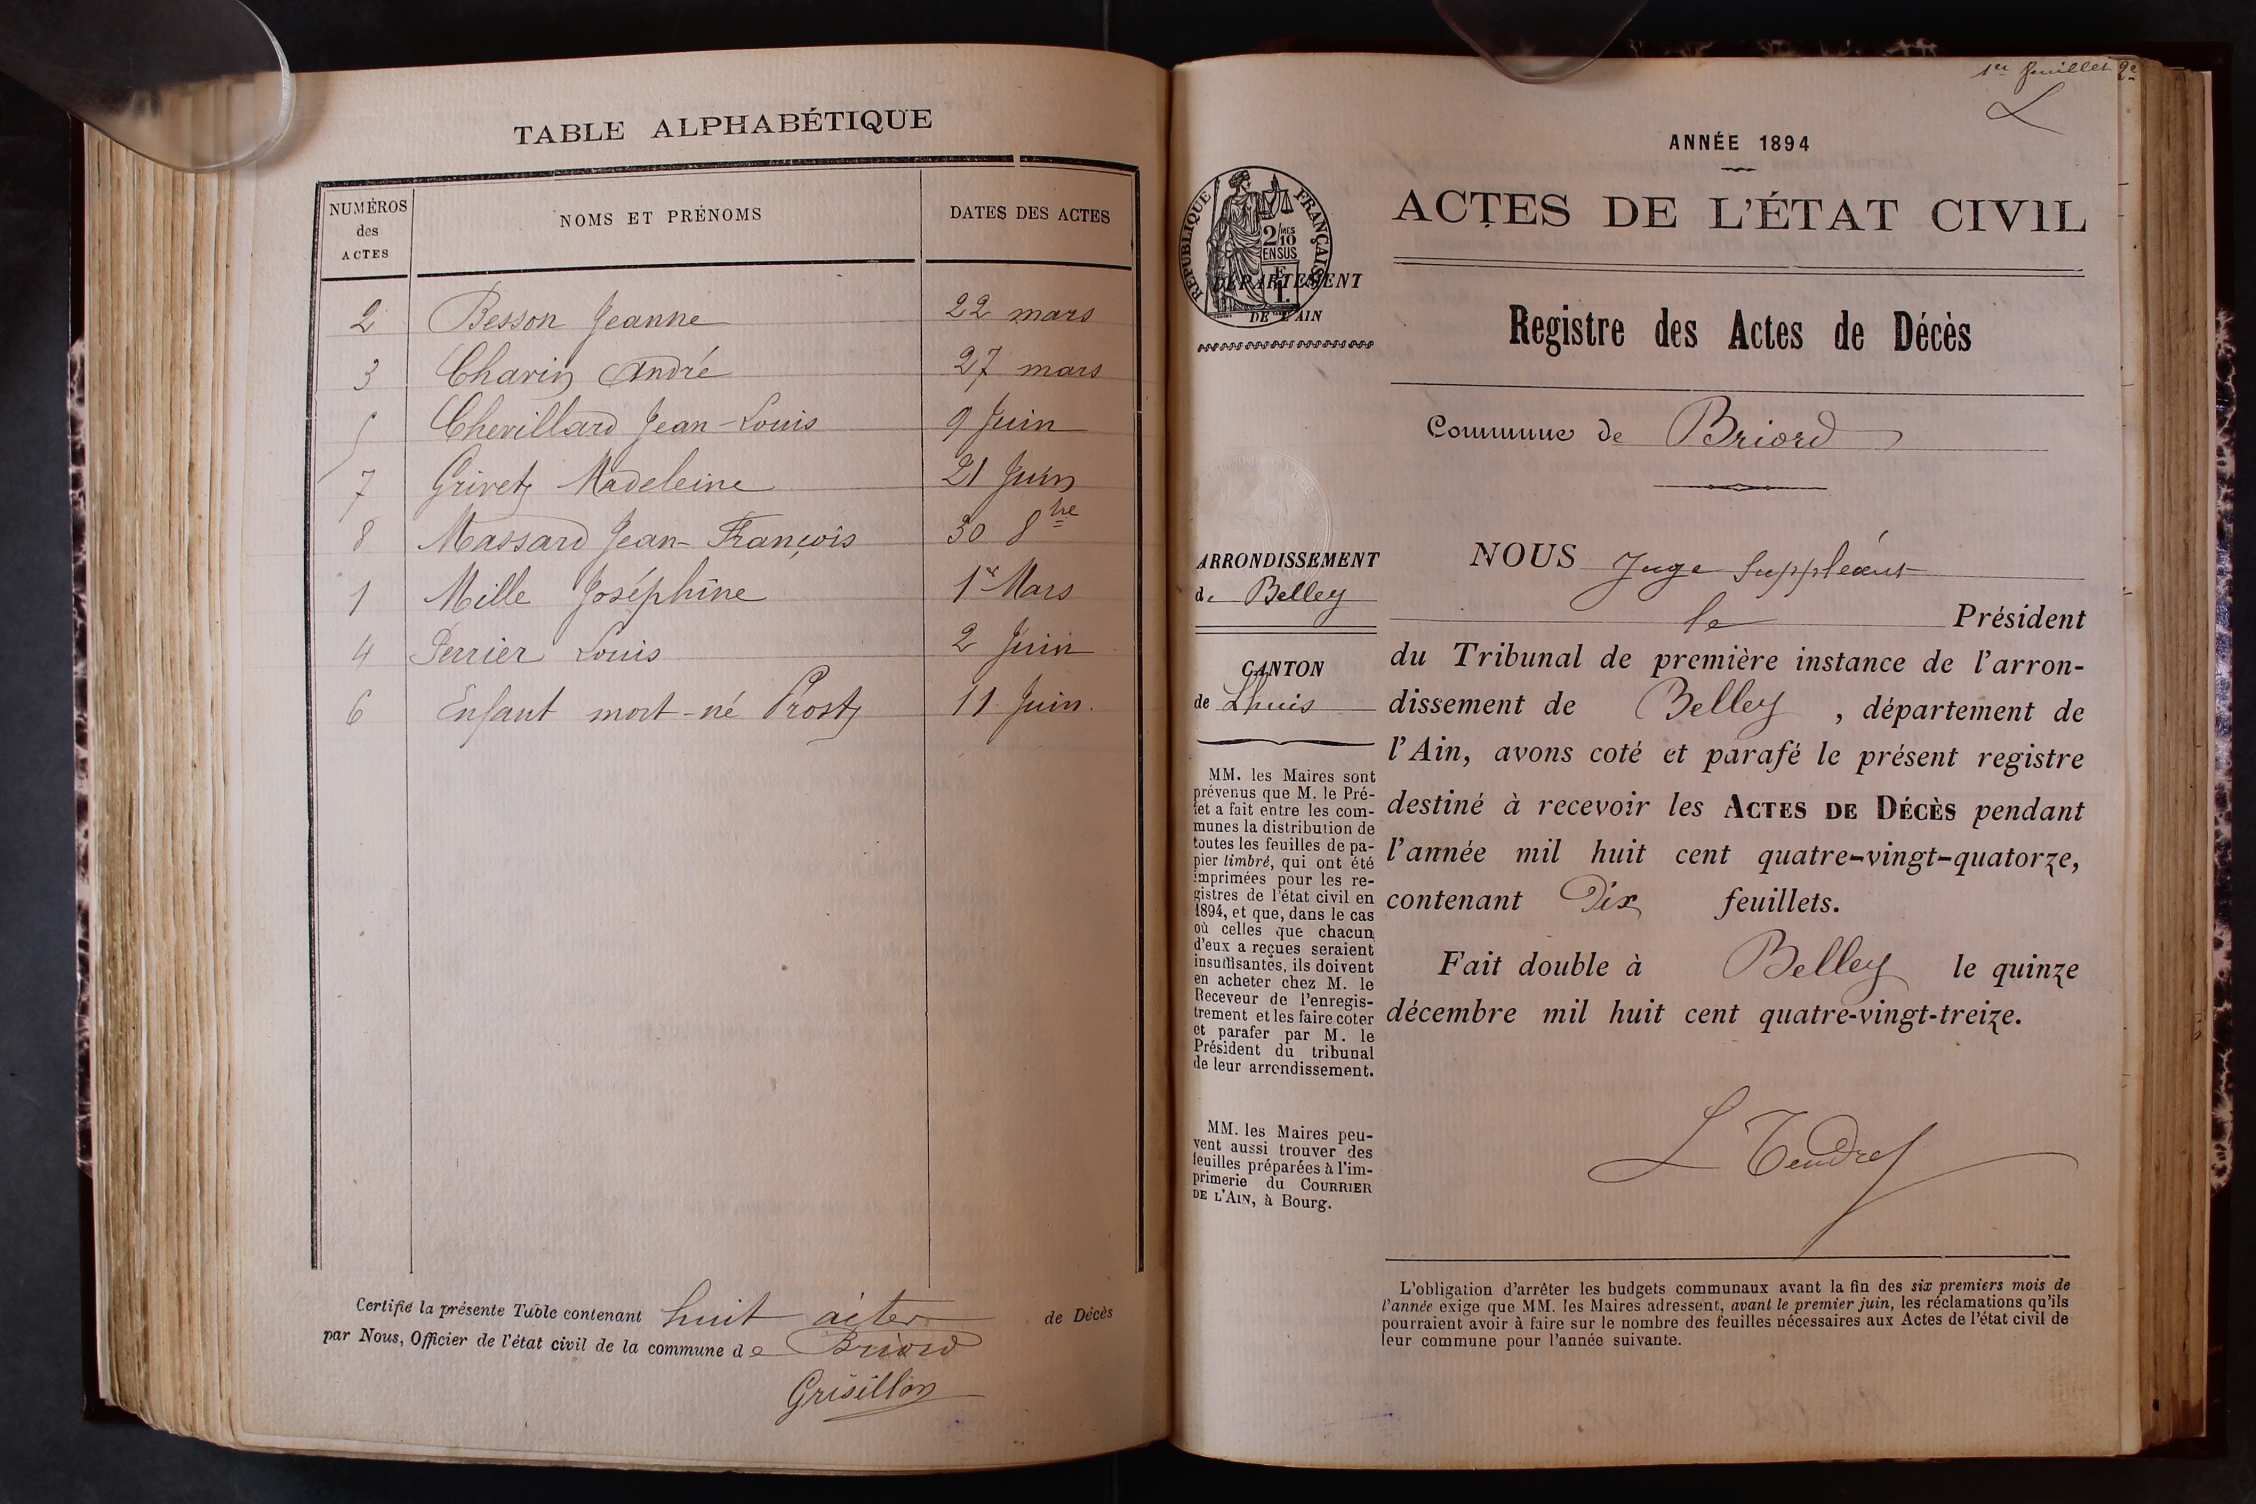 TABLE ALPHABÉTIQUE
NUMÉROS
des
ACTES
NOMS ET PRÉNOMS
DATES DES ACTES
2 Besson Jeanne 22 mars
3 Charin André 27 mars
5 Chevillard Jean-Louis 9 Juin
7 Grivetz Madeleine 21 Juin
8 Massard Jean-François 30 8bre
1 Mille Joséphine 1er Mars
4 Perrier Louis 2 Juin
6 Enfant mort-né Prostz 11 Juin.
Certifié la présente Table contenant huit actes de Décès
par Nous, Officier de l'état civil de la commune de Briord
Grisillon
1er feuillet
ANNÉE 1894
ACTES DE L'ÉTAT CIVIL
RÉPUBLIQUE FRANÇAISE
2/10
EN SUS
DÉPARTEMENT
DE L'AIN
Registre des Actes de Décès
Commune de Briord
ARRONDISSEMENT
de Belley
CANTON
de Lhuis
MM. les Maires sont
prévenus que M. le Pré-
fet a fait entre les com-
munes la distribution de
toutes les feuilles de pa-
pier timbré, qui ont été
imprimées pour les re-
gistres de l'état civil en
1894, et que, dans le cas
où celles que chacun
d'eux a reçues seraient
insuffisantes, ils doivent
en acheter chez M. le
Receveur de l'enregis-
trement et les faire coter
et parafer par M. le
Président du tribunal
de leur arrondissement.
MM. les Maires peu-
vent aussi trouver des
feuilles préparées à l'im-
primerie du COURRIER
DE L'AIN, à Bourg.
NOUS Juge Suppléant
le Président
du Tribunal de première instance de l'arron-
dissement de Belley, département de
l'Ain, avons coté et parafé le présent registre
destiné à recevoir les ACTES DE DÉCÈS pendant
l'année mil huit cent quatre-vingt-quatorze,
contenant Dix feuillets.
Fait double à Belley le quinze
décembre mil huit cent quatre-vingt-treize.
L Tendret
L'obligation d'arrêter les budgets communaux avant la fin des six premiers mois de
l'année exige que MM. les Maires adressent, avant le premier juin, les réclamations qu'ils
pourraient avoir à faire sur le nombre des feuilles nécessaires aux Actes de l'état civil de
leur commune pour l'année suivante.